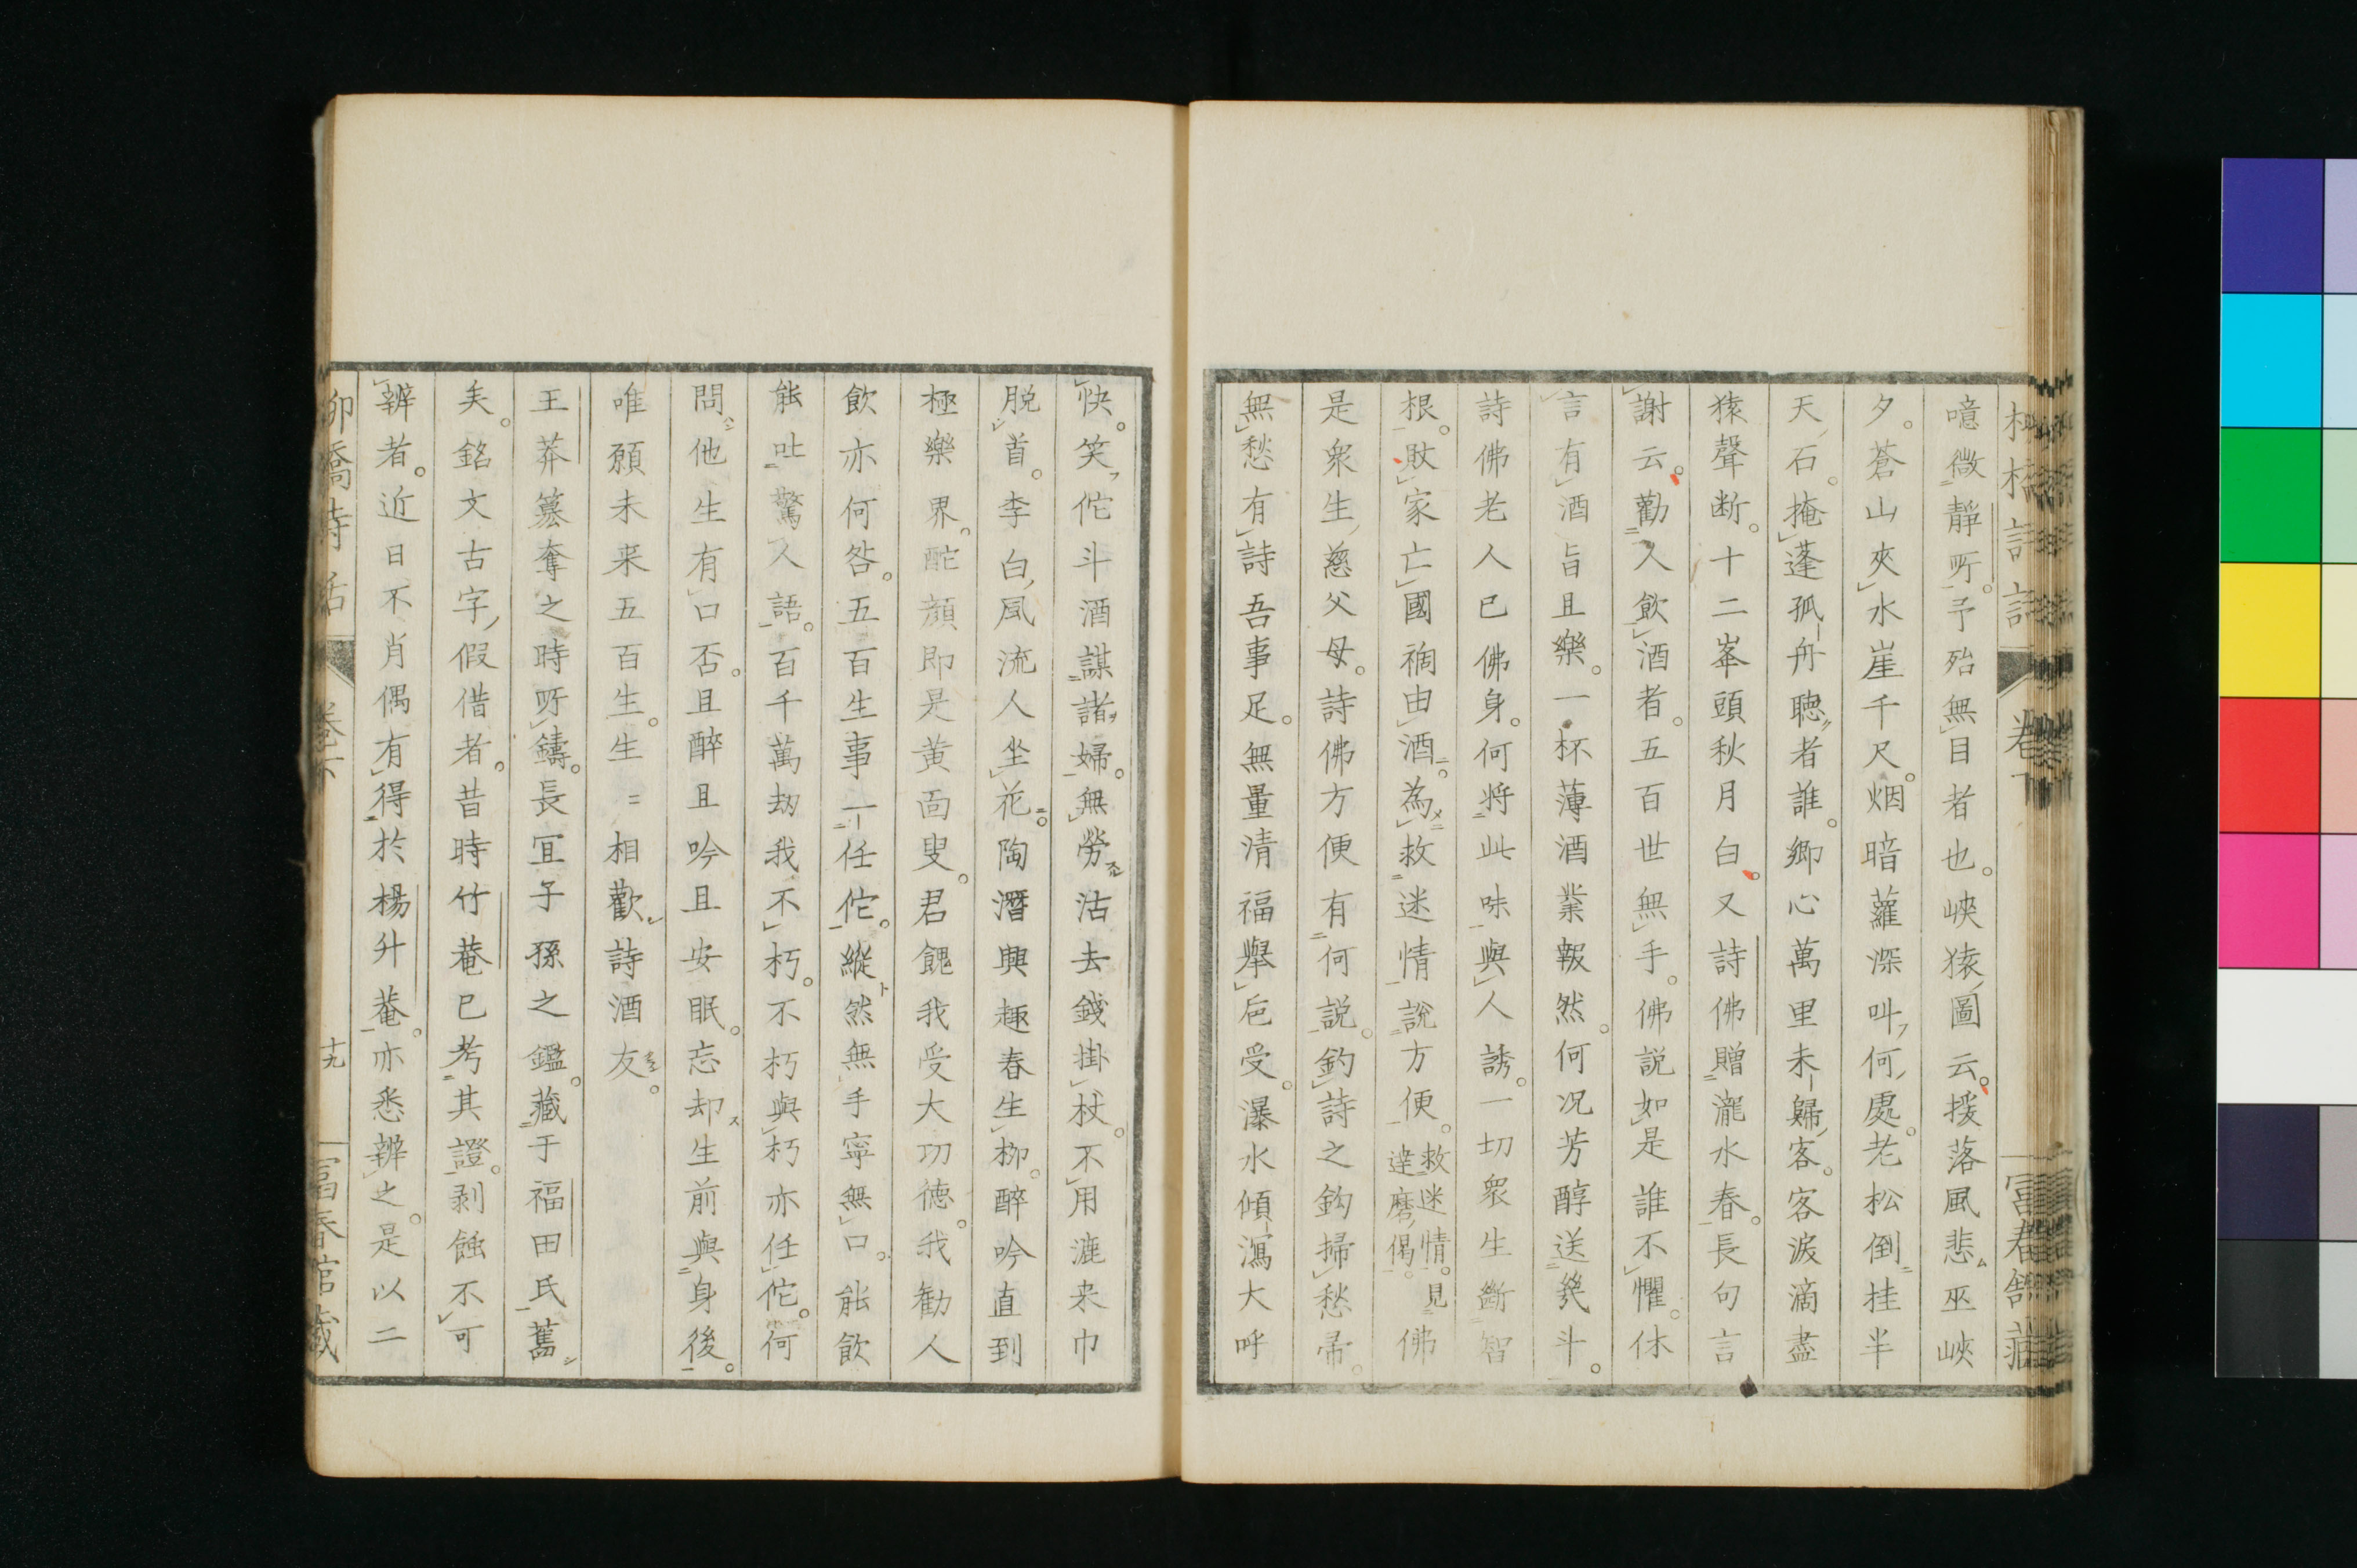 噫微靜所予殆無目者也峽猿圖云援落風悲巫峽
夕蒼山夾水崖千尺烟暗蘿深叫何處老松倒挂半
天石掩蓬孤舟聴者誰鄉心萬里未歸客客淚滴盡
猿聲断十二峯頭秋月白又詩佛贈瀧水春長句言
謝云勸人飲酒者五百世無手佛説如是誰不懼休
言有酒旨且樂一杯薄酒業報然何況芳醇送幾斗
詩佛老人已佛身何将此味與人誘一切衆生斷智
根敗家亡國禍由酒為救迷情說方便救迷情見達磨偈佛
是衆生慈父母詩佛方便有何説釣詩之鈎掃愁帚
無愁有詩吾事足無量清福舉卮受瀑水傾瀉大呼
快笑佗斗酒謀諸婦無勞沽去錢掛杖不用漉来巾
脱首李白風流人坐花陶潛興趣春生柳醉吟直到
極樂界酡顔即是黄面叟君餽我受大功徳我勧人
飲亦何咎五百生事一任佗縦然無手寧無口能飲
能吐驚人語百千萬劫我不朽不朽與朽亦任佗何
問他生有口否且醉且吟且安眠忘却生前與身後
唯願未来五百生生〻相歡詩酒友
王莽簒奪之時所鑄長宜子孫之鑑藏于福田氏舊
矣銘文古字假借者昔時竹菴已考其證剥蝕不可
辨者近日不肖偶有得於楊升菴亦悉辨之是以二
柳橋詩話
卷下
十九
富春館藏